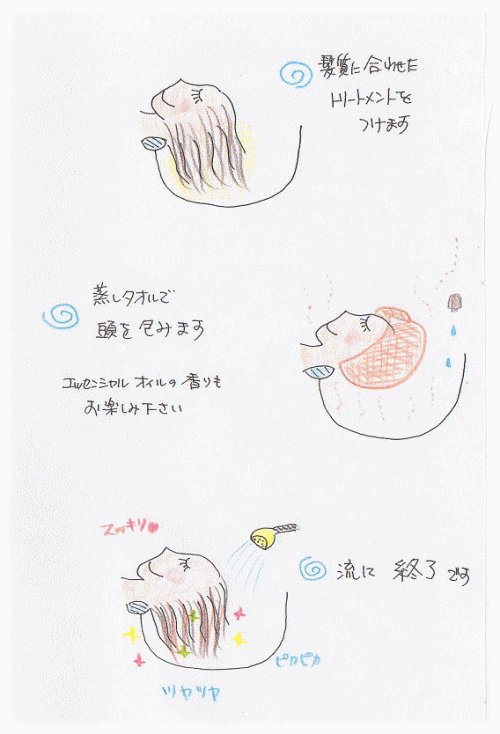 髪質に合わせた
トリートメントを
つけます
蒸しタオルで
頭を包みます
エッセンシャルオイルの香りも
お楽しみ下さい
スッキリ
流に 終了です
ピカピカ
ツヤツヤ